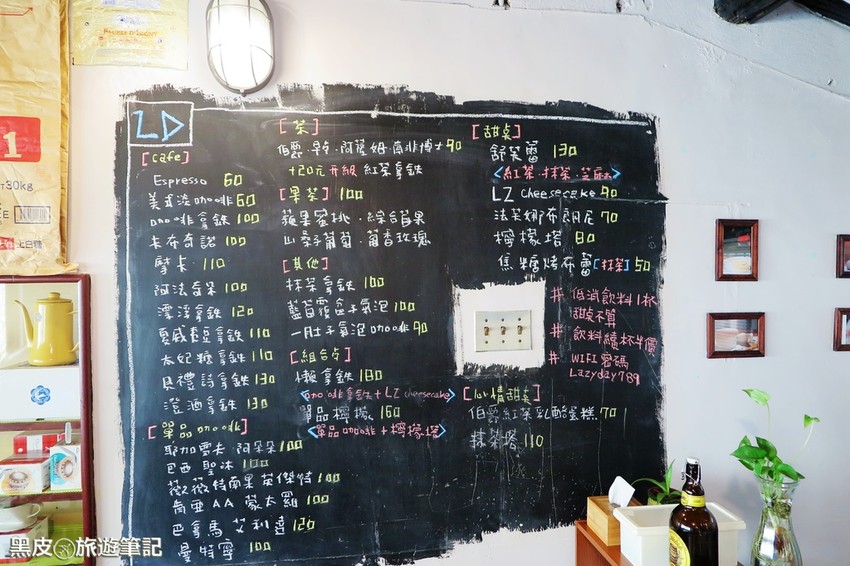 LD
[cafe]
Espresso 60
美式咖啡 60
咖啡拿鐵 100
卡布奇諾 100
摩卡 110
阿法奇朵 100
漂浮拿鐵 120
夏威夷豆拿鐵 110
太妃糖拿鐵 110
貝禮詩拿鐵 130
澄酒拿鐵 130
[單品咖啡]
耶加雪夫 阿朵朵 100
巴西 聖冰 100
薇薇特南果 英傑特 100
肯亞AA 蒙太羅 100
巴拿馬 艾利達 120
曼特寧 100
[茶]
伯爵·早午·阿薩姆·南非博士 90
+20元升級 紅茶拿鐵
[果茶] 100
蘋果蜜桃·綜合蘋果
山桑子葡萄·葡香玫瑰
[其他]
抹茶拿鐵 100
藍莓覆盆子氣泡 100
一肚子氣泡咖啡 90
[組合占]
懶拿鐵 180
<咖啡拿鐵+LZ cheesecake>
單品檸檬 160
<單品咖啡+檸檬塔>
[甜桌]
舒芙蕾 130
<紅茶·抹茶·芝麻>
LZ cheesecake 90
法芙娜布朗尼 70
檸檬塔 80
焦糖烤布蕾[抹茶] 50
# 低消飲料1杯
甜桌不算
# 飲料續杯半價
# WIFI 密碼
Lazyday789
伯爵紅茶乳酪蛋糕 70
抹茶塔 110
1
30kg
上白糖
黑皮 旅遊筆記